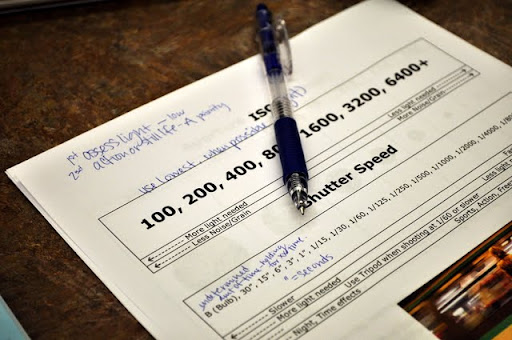 1st assess light - low
2nd action or still life - A priority
ISO
use lowest when possible
100, 200, 400, 80 1600, 3200, 6400+
More light needed
Less Noise/Grain
Less light needed
More Noise/Grain
Shutter Speed
undetermined
amt of time holding
for extra time
B (Bulb), 30", 15", 6", 3", 1", 1/15, 1/30, 1/60, 1/125, 1/250, 1/500, 1/1000, 1/2000, 1/4000, 1/80
" = seconds
Slower
More light needed
Night, Time effects
Use Tripod when shooting at 1/60 or slower
Less light
Sports, Action, Free